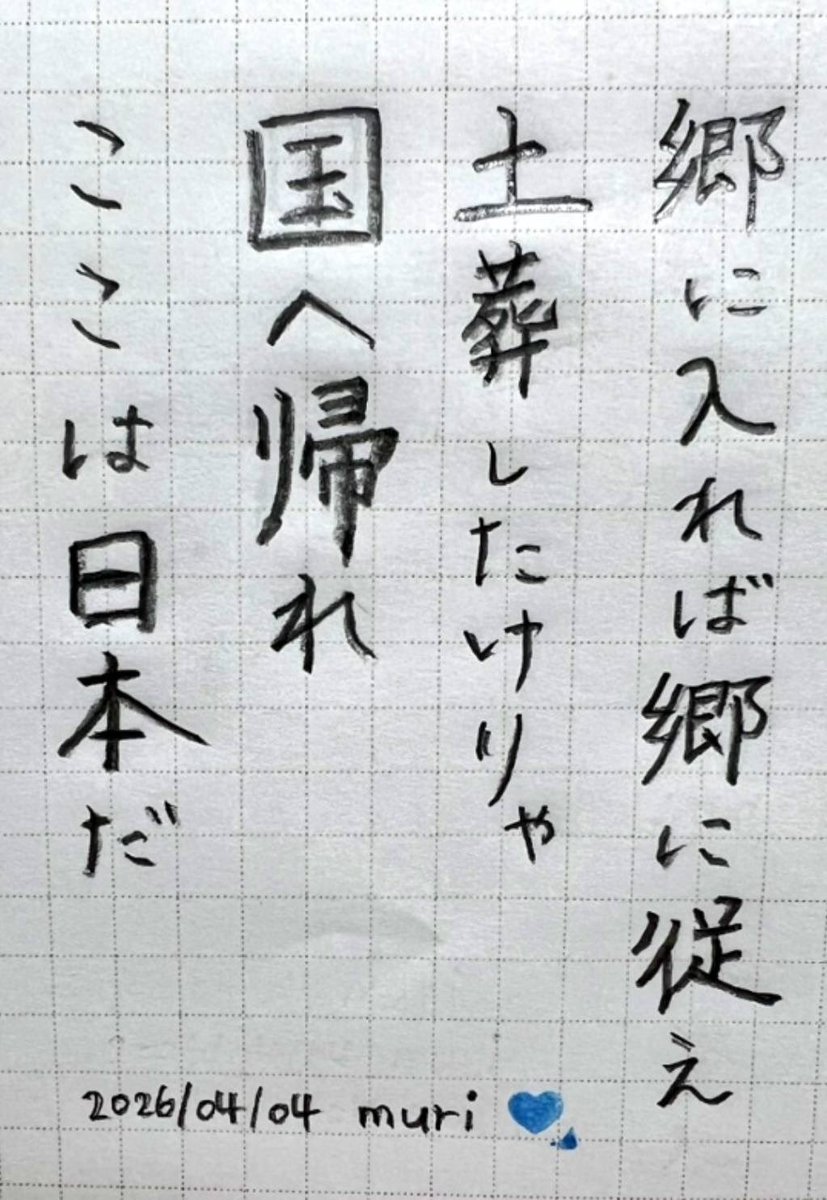 郷に入れば郷に従え
土葬したけりゃ
国へ帰れ
ここは日本だ
2026/04/04 muri